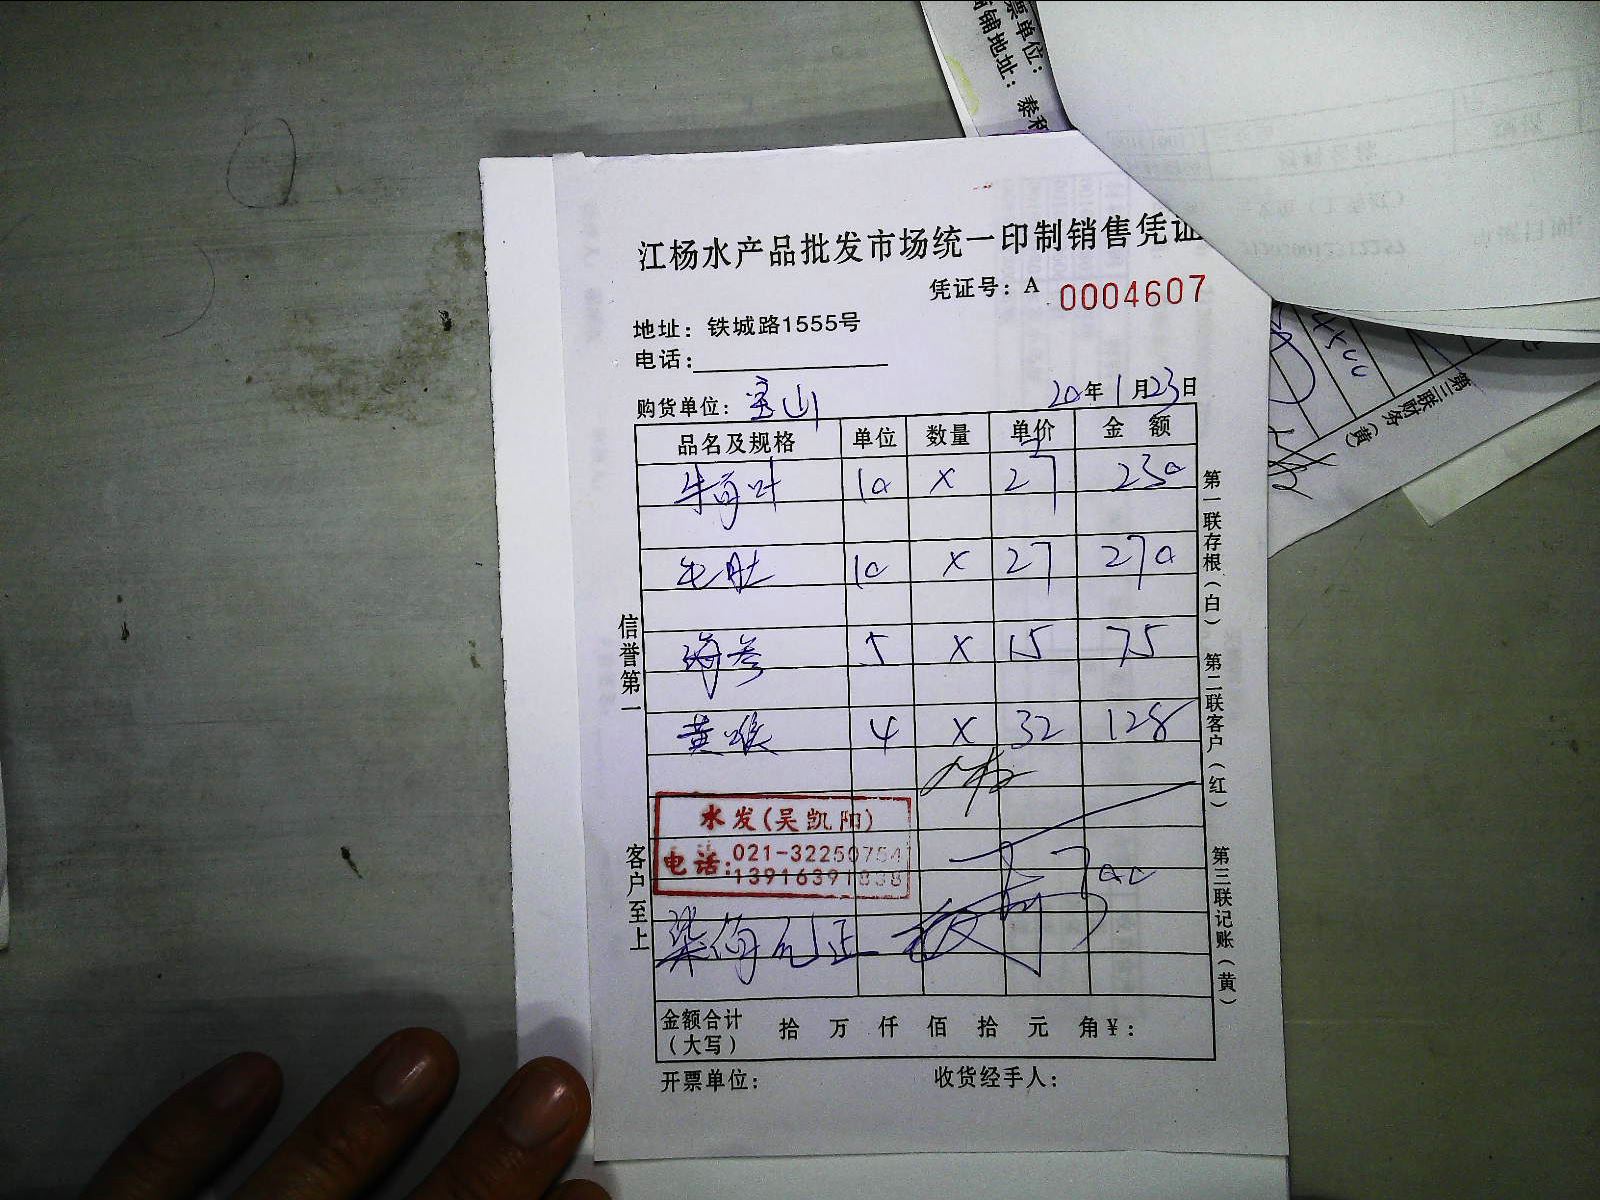 票单位：
商铺地址：泰和
江杨水产品批发市场统一印制销售凭证
凭证号：A 0004607
地址：铁城路1555号
电话：
购货单位：宝山 20年1月23日
品名及规格 单位 数量 单价 金额
牛百叶 10 × 27 230
毛肚 10 × 27 270
海参 5 × 15 75
黄喉 4 × 32 128
水发(吴凯阳)
电话：021-32250754
13916391838
700
金额合计（大写） 拾 万 仟 佰 拾 元 角 ¥：
开票单位： 收货经手人：
信誉第一
客户至上
第一联存根（白）
第二联客户（红）
第三联记账（黄）
第三联财务（黄）